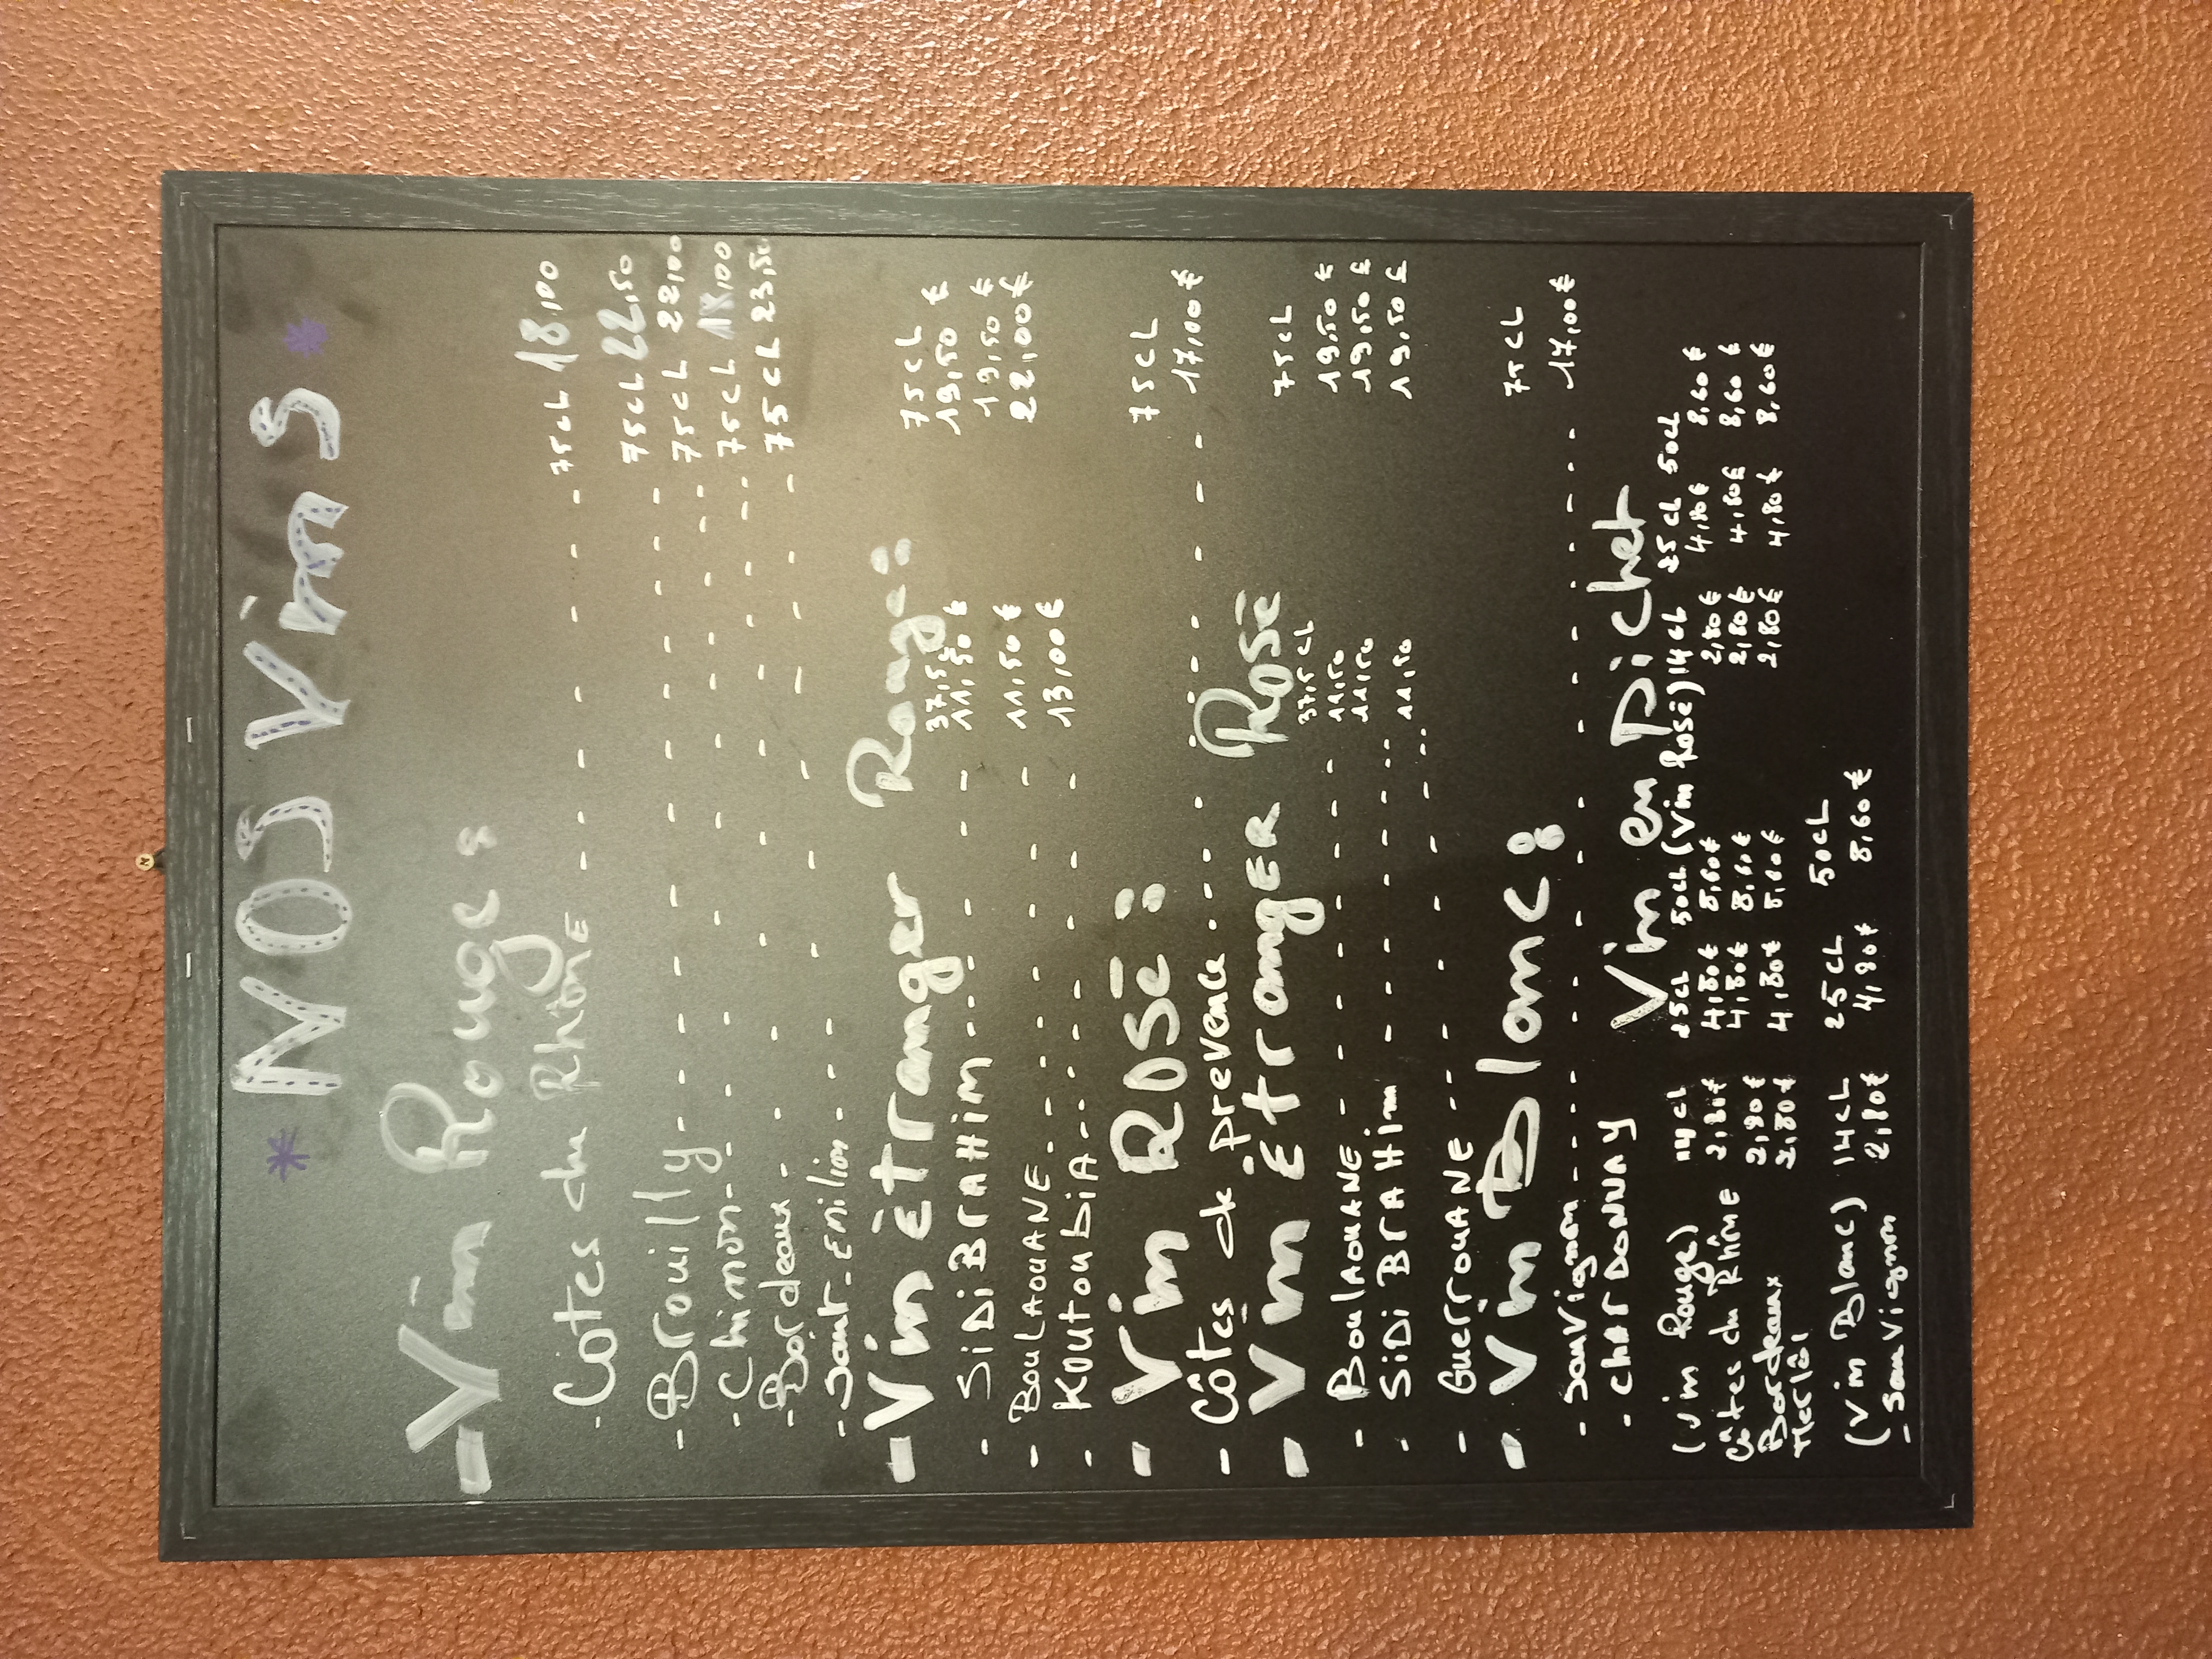 * NOS Vins *
- Vin Rouge :
- Côtes du Rhône - - - - - - 75cL 18,00
- Brouilly - - - - - - - 75cL 22,50
- Chinon - - - - - - - 75cL 22,00
- Bordeaux - - - - - - 75cL 18,00
- Saint-Emilion - - - - - - 75cL 23,50
- Vin Étranger Rouge :
37,5 75cL
- SiDi BrAHim - - - - - 11,50 € 19,50 €
- BouLAOUANE - - - - - 11,50 € 19,50 €
- KoutoubiA - - - - - 13,00 € 22,00 €
- Vin ROSé : 75cL
- Côtes de prevence - - - - - - 17,00 €
- Vin ÉtrangER Rosé
37,5 cL 75cL
- BoulAouANE - - - - - 11,50 19,50 €
- SiDi BrA Him - - - - - 11,50 19,50 €
- GuerrouANE - - - - - 11,50 19,50 €
- Vin Blanc : 75cL
- Sauvignon - - - - - - - - 17,00 €
- CHArDONNAY
Vin en Pichet
(Vin Rouge) 14cL 25cL 50cL (Vin Rosé) 14cL 25cL 50cL
Côtes du Rhône 2,80€ 4,80€ 8,60€ 2,80€ 4,80€ 8,60€
Bordeaux 2,80€ 4,80€ 8,60€ 2,80€ 4,80€ 8,60€
Merlot 2,80€ 4,80€ 8,60€ 2,80€ 4,80€ 8,60€
(Vin Blanc) 14cL 25cL 50cL
- Sauvignon 2,80€ 4,80€ 8,60€